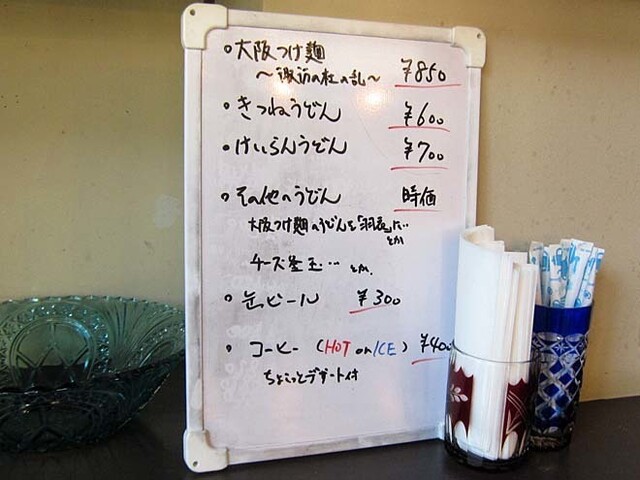 大阪つけ麺
〜諏訪の杜の乱〜 ¥850
きつねうどん ¥600
けいらんうどん ¥700
その他のうどん 時価
大阪つけ麺のうどんを「羽衣」に…
とか
チーズ釜玉… とか、
缶ビール ¥300
コーヒー (HOT or ICE) ¥400
ちょこっとデザート付